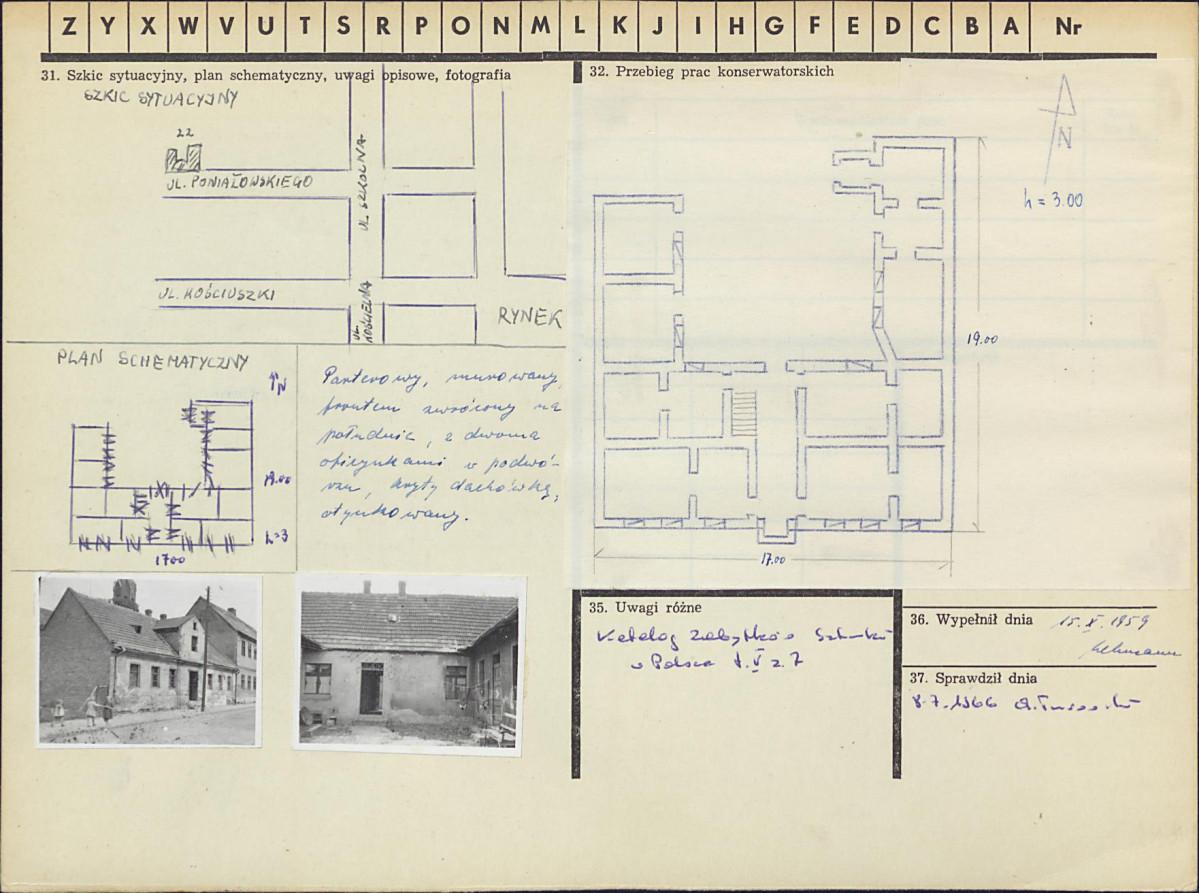 Z Y X W V U T S R P O N M L K J I H G F E D C B A Nr
31. Szkic sytuacyjny, plan schematyczny, uwagi opisowe, fotografia
SZKIC SYTUACYJNY
22
UL. PONIATOWSKIEGO
UL. SZKOLNA
UL. KOŚCIUSZKI
UL. KOŚCIELNA
RYNEK
PLAN SCHEMATYCZNY
N
19.00
h=3
17.00
Parterowy, murowany,
frontem zwrócony na
południe, z dwoma
oficynkami w podwó-
rzu, kryty dachówką,
otynkowany.
32. Przebieg prac konserwatorskich
N
h = 3.00
19.00
17.00
35. Uwagi różne
Katalog Zabytków Sztuki
w Polsce t. V z. 7
36. Wypełnił dnia 15. X. 1959
37. Sprawdził dnia
8.7.1966